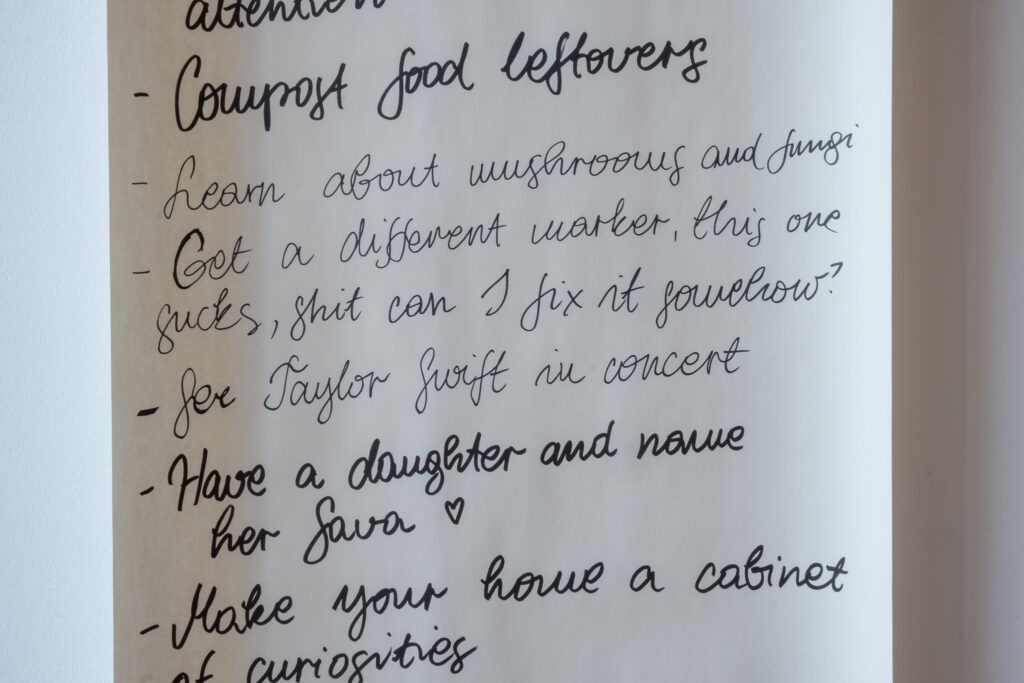 attention
- Compost food leftovers
- Learn about mushrooms and fungi
- Get a different marker, this one
sucks, shit can I fix it somehow?
- See Taylor Swift in concert
- Have a daughter and name
her Sava ♡
- Make your home a cabinet
of curiosities